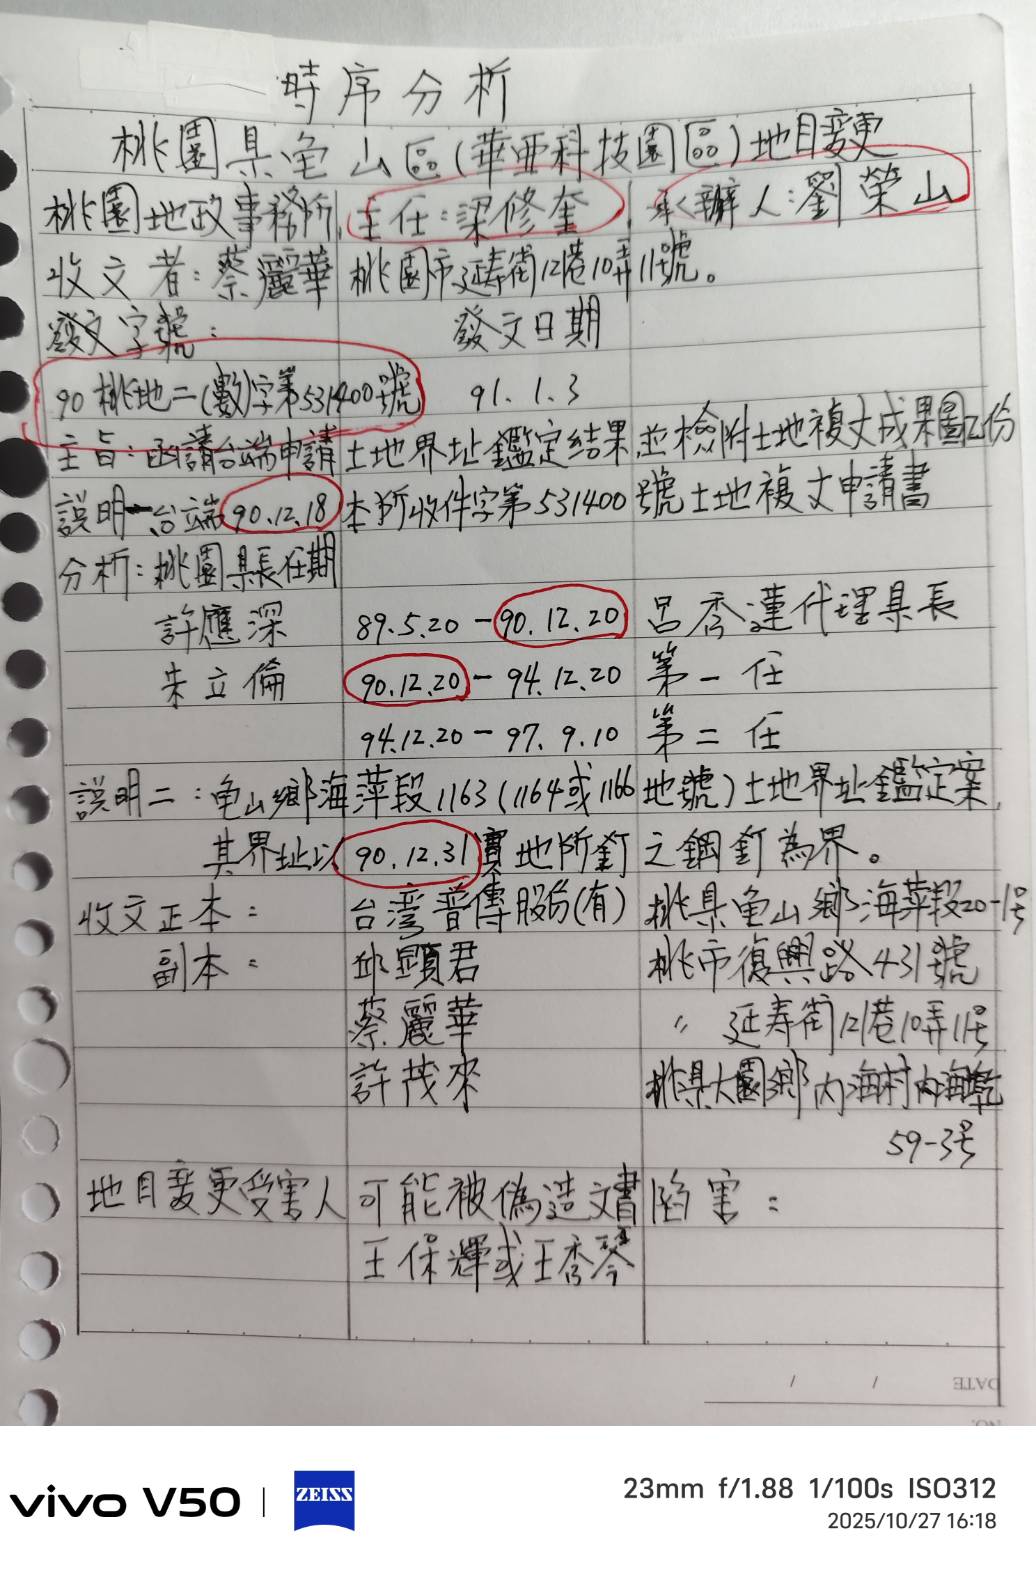 時序分析
桃園県龟山區(華亜科技園區)地目変更
桃園地政事務所,主任:梁修奎,承辦人:劉榮山
收文者:蔡麗華 桃園市延寿街12巷10弄11號。
發文字號: 發文日期
90桃地二(數)字第531400號 91.1.3
主旨:函請台端申請土地界址鑑定結果,並檢附土地複丈成果圖乙份
説明一台端90.12.18本所收件字第531400號土地複丈申請書
分析:桃園県長任期
許應深 89.5.20-90.12.20 呂秀蓮代理県長
朱立倫 90.12.20-94.12.20 第一任
94.12.20-97.9.10 第二任
説明二:龟山鄉海萍段1163(1164或1166地號)土地界址鑑定案,
其界址以90.12.31實地所釘之鋼釘為界。
收文正本: 台湾普傳股份(有) 桃県龟山鄉海萍段20-1号
副本: 邱顯君 桃市復興路431號
蔡麗華 〃 延寿街12巷10弄11号
許茂來 桃県大園鄉内海村内海墘
59-3号
地目変更受害人可能被偽造文書陷害:
王保輝或王秀琴
DATE / /
NO.
vivo V50 | ZEISS
23mm f/1.88 1/100s ISO312
2025/10/27 16:18